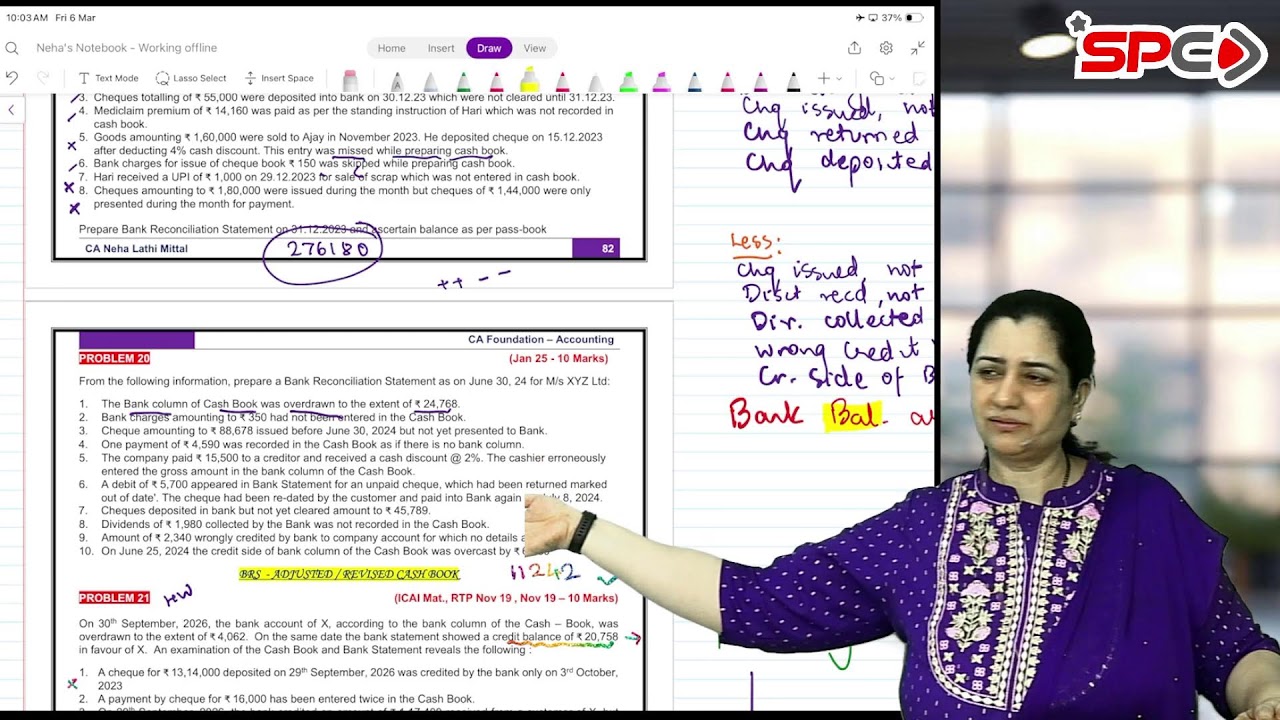 10:03 AM Fri 6 Mar
37%
SPC
Neha's Notebook - Working offline
Home Insert Draw View
Text Mode Lasso Select Insert Space
3. Cheques totalling of ₹ 55,000 were deposited into bank on 30.12.23 which were not cleared until 31.12.23.
4. Mediclaim premium of ₹ 14,160 was paid as per the standing instruction of Hari which was not recorded in
cash book.
5. Goods amounting ₹ 1,60,000 were sold to Ajay in November 2023. He deposited cheque on 15.12.2023
after deducting 4% cash discount. This entry was missed while preparing cash book.
6. Bank charges for issue of cheque book ₹ 150 was skipped while preparing cash book.
7. Hari received a UPI of ₹ 1,000 on 29.12.2023 for sale of scrap which was not entered in cash book.
8. Cheques amounting to ₹ 1,80,000 were issued during the month but cheques of ₹ 1,44,000 were only
presented during the month for payment.
Prepare Bank Reconciliation Statement on 31.12.2023 and ascertain balance as per pass-book
CA Neha Lathi Mittal 82
276180
++ - -
CA Foundation – Accounting
PROBLEM 20 (Jan 25 - 10 Marks)
From the following information, prepare a Bank Reconciliation Statement as on June 30, 24 for M/s XYZ Ltd:
1. The Bank column of Cash Book was overdrawn to the extent of ₹ 24,768.
2. Bank charges amounting to ₹ 350 had not been entered in the Cash Book.
3. Cheque amounting to ₹ 88,678 issued before June 30, 2024 but not yet presented to Bank.
4. One payment of ₹ 4,590 was recorded in the Cash Book as if there is no bank column.
5. The company paid ₹ 15,500 to a creditor and received a cash discount @ 2%. The cashier erroneously
entered the gross amount in the bank column of the Cash Book.
6. A debit of ₹ 5,700 appeared in Bank Statement for an unpaid cheque, which had been returned marked
out of date'. The cheque had been re-dated by the customer and paid into Bank again 8, 2024.
7. Cheques deposited in bank but not yet cleared amount to ₹ 45,789.
8. Dividends of ₹ 1,980 collected by the Bank was not recorded in the Cash Book.
9. Amount of ₹ 2,340 wrongly credited by bank to company account for which no details
10. On June 25, 2024 the credit side of bank column of the Cash Book was overcast by ₹
BRS - ADJUSTED / REVISED CASH BOOK
11242
PROBLEM 21 HW (ICAI Mat., RTP Nov 19 , Nov 19 – 10 Marks)
On 30th September, 2026, the bank account of X, according to the bank column of the Cash – Book, was
overdrawn to the extent of ₹ 4,062. On the same date the bank statement showed a credit balance of ₹ 20,758
in favour of X. An examination of the Cash Book and Bank Statement reveals the following :
1. A cheque for ₹ 13,14,000 deposited on 29th September, 2026 was credited by the bank only on 3rd October,
2023
2. A payment by cheque for ₹ 16,000 has been entered twice in the Cash Book.
Chq issued, not
Chq returned
Chq deposited
Less:
Chq issued, not
Disct recd, not
Dir. collected
Wrong Credit
Cr. Side of B
Bank Bal.